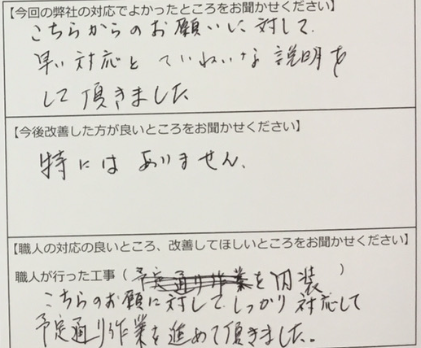 【今回の弊社の対応でよかったところをお聞かせください】
こちらからのお願いに対して、
早い対応とていねいな説明を
して頂きました
【今後改善した方が良いところをお聞かせください】
特にはありません。
【職人の対応の良いところ、改善してほしいところをお聞かせください】
職人が行った工事（予定通り作業を内装）
こちらのお願に対してしっかり対応して
予定通り作業を進めて頂きました。